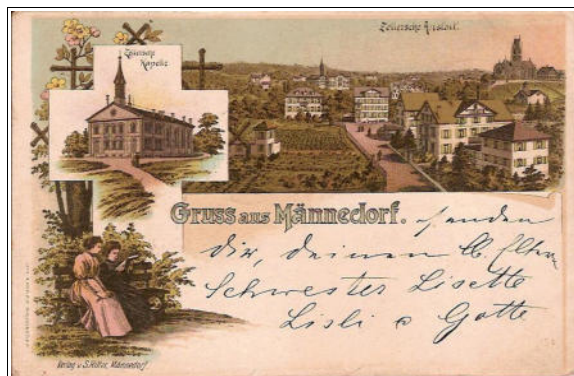 Zellersche Anstalt.
Kapelle
Gruss aus Männedorf. senden
dir, deinen lb. Eltern
Schwester Lisette
Lisli & Gotte
Verlag v. S. Hötter, Männedorf.